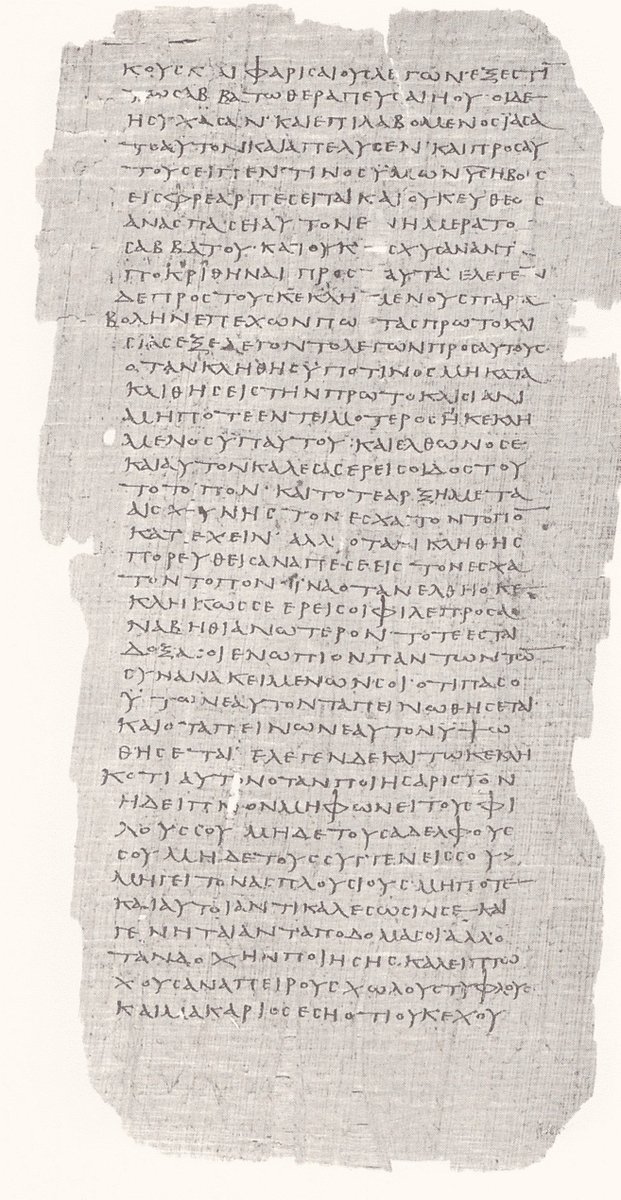 ΚΟΥϹΚΑΙΦΑΡΙϹΑΙΟΥϹΛΕΓΩΝΕΞΕϹΤΙ̅
ΤΩϹΑΒΒΑΤΩΘΕΡΑΠΕΥϹΑΙΗΟΥ·ΟΙΔΕ
ΗϹΥΧΑϹΑΝ·ΚΑΙΕΠΙΛΑΒΟΜΕΝΟϹΙΑϹΑ
ΤΟΑΥΤΟΝΚΑΙΑΠΕΛΥϹΕΝ·ΚΑΙΠΡΟϹΑΥ
ΤΟΥϹΕΙΠΕΝ·ΤΙΝΟϹΫΜΩΝΥ̅Ϲ̅ΗΒΟΥϹ
ΕΙϹΦΡΕΑΡΠΕϹΕΙΤΑΙΚΑΙΟΥΚΕΥΘΕΩϹ
ΑΝΑϹΠΑϹΕΙΑΥΤΟΝΕΝΗΜΕΡΑΤΟ
ϹΑΒΒΑΤΟΥ·ΚΑΙΟΥΚΙϹΧΥϹΑΝΑΝΤ
ΠΟΚΡΙΘΗΝΑΙΠΡΟϹΤΑΥΤΑ·ΕΛΕΓΕΝ
ΔΕΠΡΟϹΤΟΥϹΚΕΚΛΗΜΕΝΟΥϹΠΑΡΑ
ΒΟΛΗΝΕΠΕΧΩΝΠΩϹΤΑϹΠΡΩΤΟΚΛΙ
ϹΙΑϹΕΞΕΛΕΓΟΝΤΟΛΕΓΩΝΠΡΟϹΑΥΤΟΥϹ
ΟΤΑΝΚΛΗΘΗϹΫΠΟΤΙΝΟϹΜΗΚΑΤΑ
ΚΛΙΘΗϹΕΙϹΤΗΝΠΡΩΤΟΚΛΙϹΙΑΝ
ΜΗΠΟΤΕΕΝΤΕΙΜΟΤΕΡΟϹΗΚΕΚΛΗ
ΜΕΝΟϹΫΠΑΥΤΟΥ·ΚΑΙΕΛΘΩΝΟϹΕ
ΚΑΙΑΥΤΟΝΚΑΛΕϹΑϹΕΡΕΙϹΟΙΔΟϹΤΟΥ
ΤΟΤΟΠΟΝ·ΚΑΙΤΟΤΕΑΡΞΗΜΕΤΑ
ΑΙϹΧΥΝΗϹΤΟΝΕϹΧΑΤΟΝΤΟΠΟ̅
ΚΑΤΕΧΕΙΝ·ΑΛΛΟΤΑΝΚΛΗΘΗϹ
ΠΟΡΕΥΘΕΙϹΑΝΑΠΕϹΕΕΙϹΤΟΝΕϹΧΑ
ΤΟΝΤΟΠΟΝ·ΪΝΑΟΤΑΝΕΛΘΗΟΚΕ
ΚΛΗΚΩϹϹΕΕΡΕΙϹΟΙΦΙΛΕΠΡΟϹΑ
ΝΑΒΗΘΙΑΝΩΤΕΡΟΝ·ΤΟΤΕΕϹΤΑΙ
ΔΟΞΑϹΟΙΕΝΩΠΙΟΝΠΑΝΤΩΝΤΩ̅
ϹΥΝΑΝΑΚΕΙΜΕΝΩΝϹΟΙ·ΟΤΙΠΑϹΟ
ΫΨΩΝΕΑΥΤΟΝΤΑΠΕΙΝΩΘΗϹΕΤΑΙ
ΚΑΙΟΤΑΠΕΙΝΩΝΕΑΥΤΟΝΥΨΩ
ΘΗϹΕΤΑΙ·ΕΛΕΓΕΝΔΕΚΑΙΤΩΚΕΚΛΗ
ΚΟΤΙΑΥΤΟΝΟΤΑΝΠΟΙΗϹΑΡΙϹΤΟΝ
ΗΔΕΙΠΝΟΝΜΗΦΩΝΕΙΤΟΥϹΦΙ
ΛΟΥϹϹΟΥΜΗΔΕΤΟΥϹΑΔΕΛΦΟΥϹ
ϹΟΥΜΗΔΕΤΟΥϹϹΥΓΓΕΝΕΙϹϹΟΥ
ΜΗΓΕΙΤΟΝΑϹΠΛΟΥϹΙΟΥϹ·ΜΗΠΟΤΕ
ΚΑΙΑΥΤΟΙΑΝΤΙΚΑΛΕϹΩϹΙΝϹΕΚΑΙ
ΓΕΝΗΤΑΙΑΝΤΑΠΟΔΟΜΑϹΟΙΑΛΛΟ
ΤΑΝΔΟΧΗΝΠΟΙΗϹΗϹΚΑΛΕΙΠΤΩ
ΧΟΥϹΑΝΑΠΕΙΡΟΥϹΧΩΛΟΥϹΤΥΦΛΟΥϹ
ΚΑΙΜΑΚΑΡΙΟϹΕϹΗΟΤΙΟΥΚΕΧΟΥ